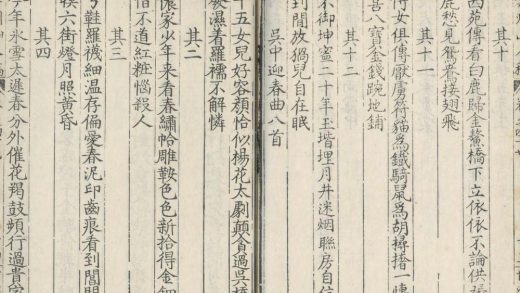 西苑傳看白鹿歸金鰲橋下立依依不論供張
鹿愁見鴛鴦接翅飛
其十一
侍女俱傳厭虜符猫為鐵騎鼠為胡撏撦一
喜八寶金錢踠地鋪
其十二
不御坤寧二十年玉堦埋月井迷烟聯房自
到閒放猧兒自在眠
吳中迎春曲八首
十五女兒好容顏恰似楊花太劇顛貪過吳橋
發濕着羅襦不解憐
其二
儂家少年来看春繡帢雕鞍色色新拾得金鈿
惜不道紅粧惱殺人
其三
弓鞋羅襪細温存偏愛春泥印齒痕看到閶門
六街燈月照黃昏
其四
今年氷雪太遲春分外催花羯鼓頻行過貴家